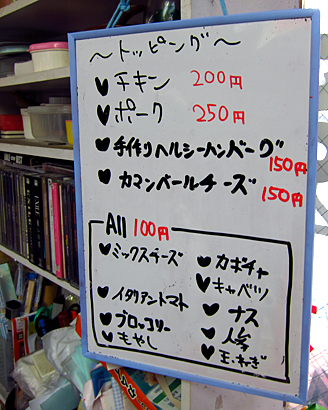 ～トッピング～
♥チキン 200円
♥ポーク 250円
♥手作りヘルシーハンバーグ 150円
♥カマンベールチーズ 150円
All 100円
♥ミックスチーズ
♥イタリアントマト
♥ブロッコリー
♥もやし
♥カボチャ
♥キャベツ
♥ナス
♥人参
♥玉ねぎ